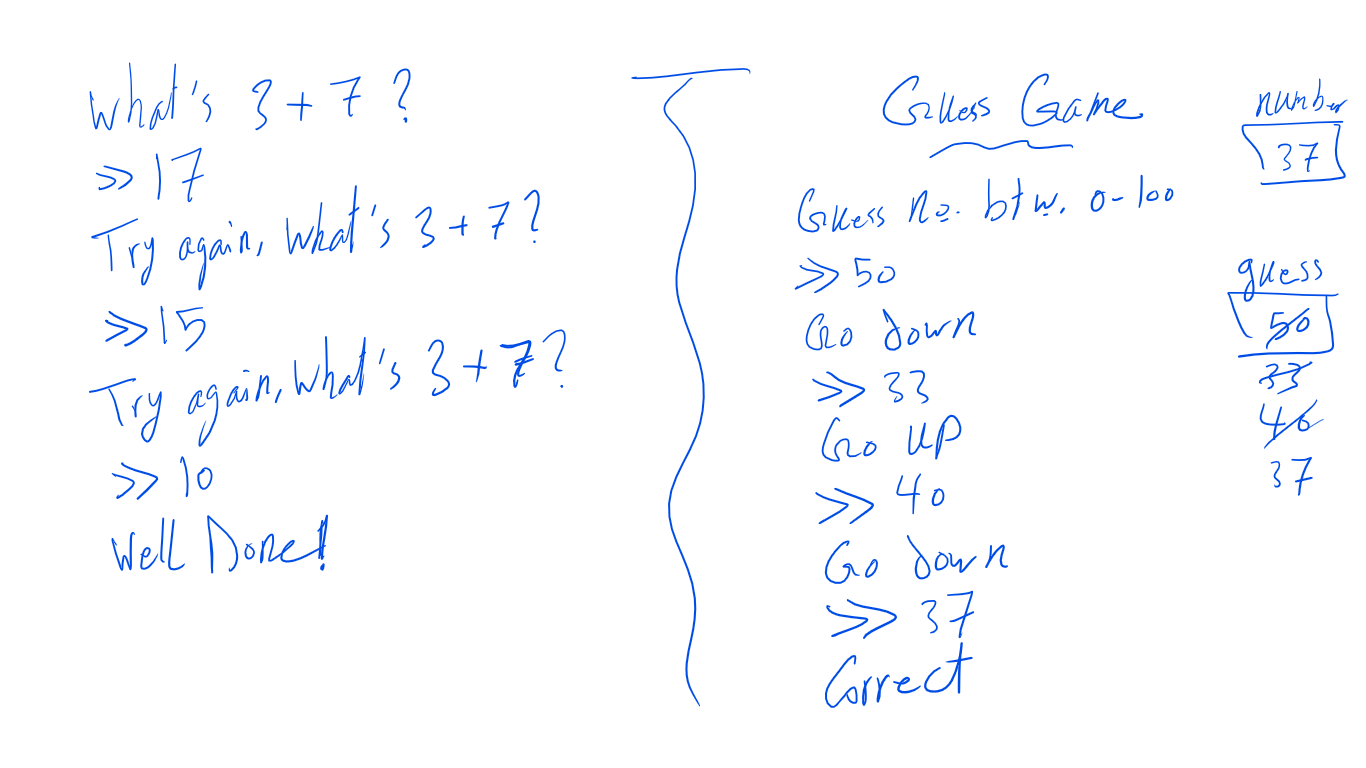 What's 3 + 7 ?
>> 17
Try again, What's 3 + 7 ?
>> 15
Try again, What's 3 + 7 ?
>> 10
Well Done!
Guess Game
Guess no. btw. 0-100
>> 50
Go down
>> 33
Go UP
>> 40
Go down
>> 37
Correct
number
37
guess
50
33
40
37